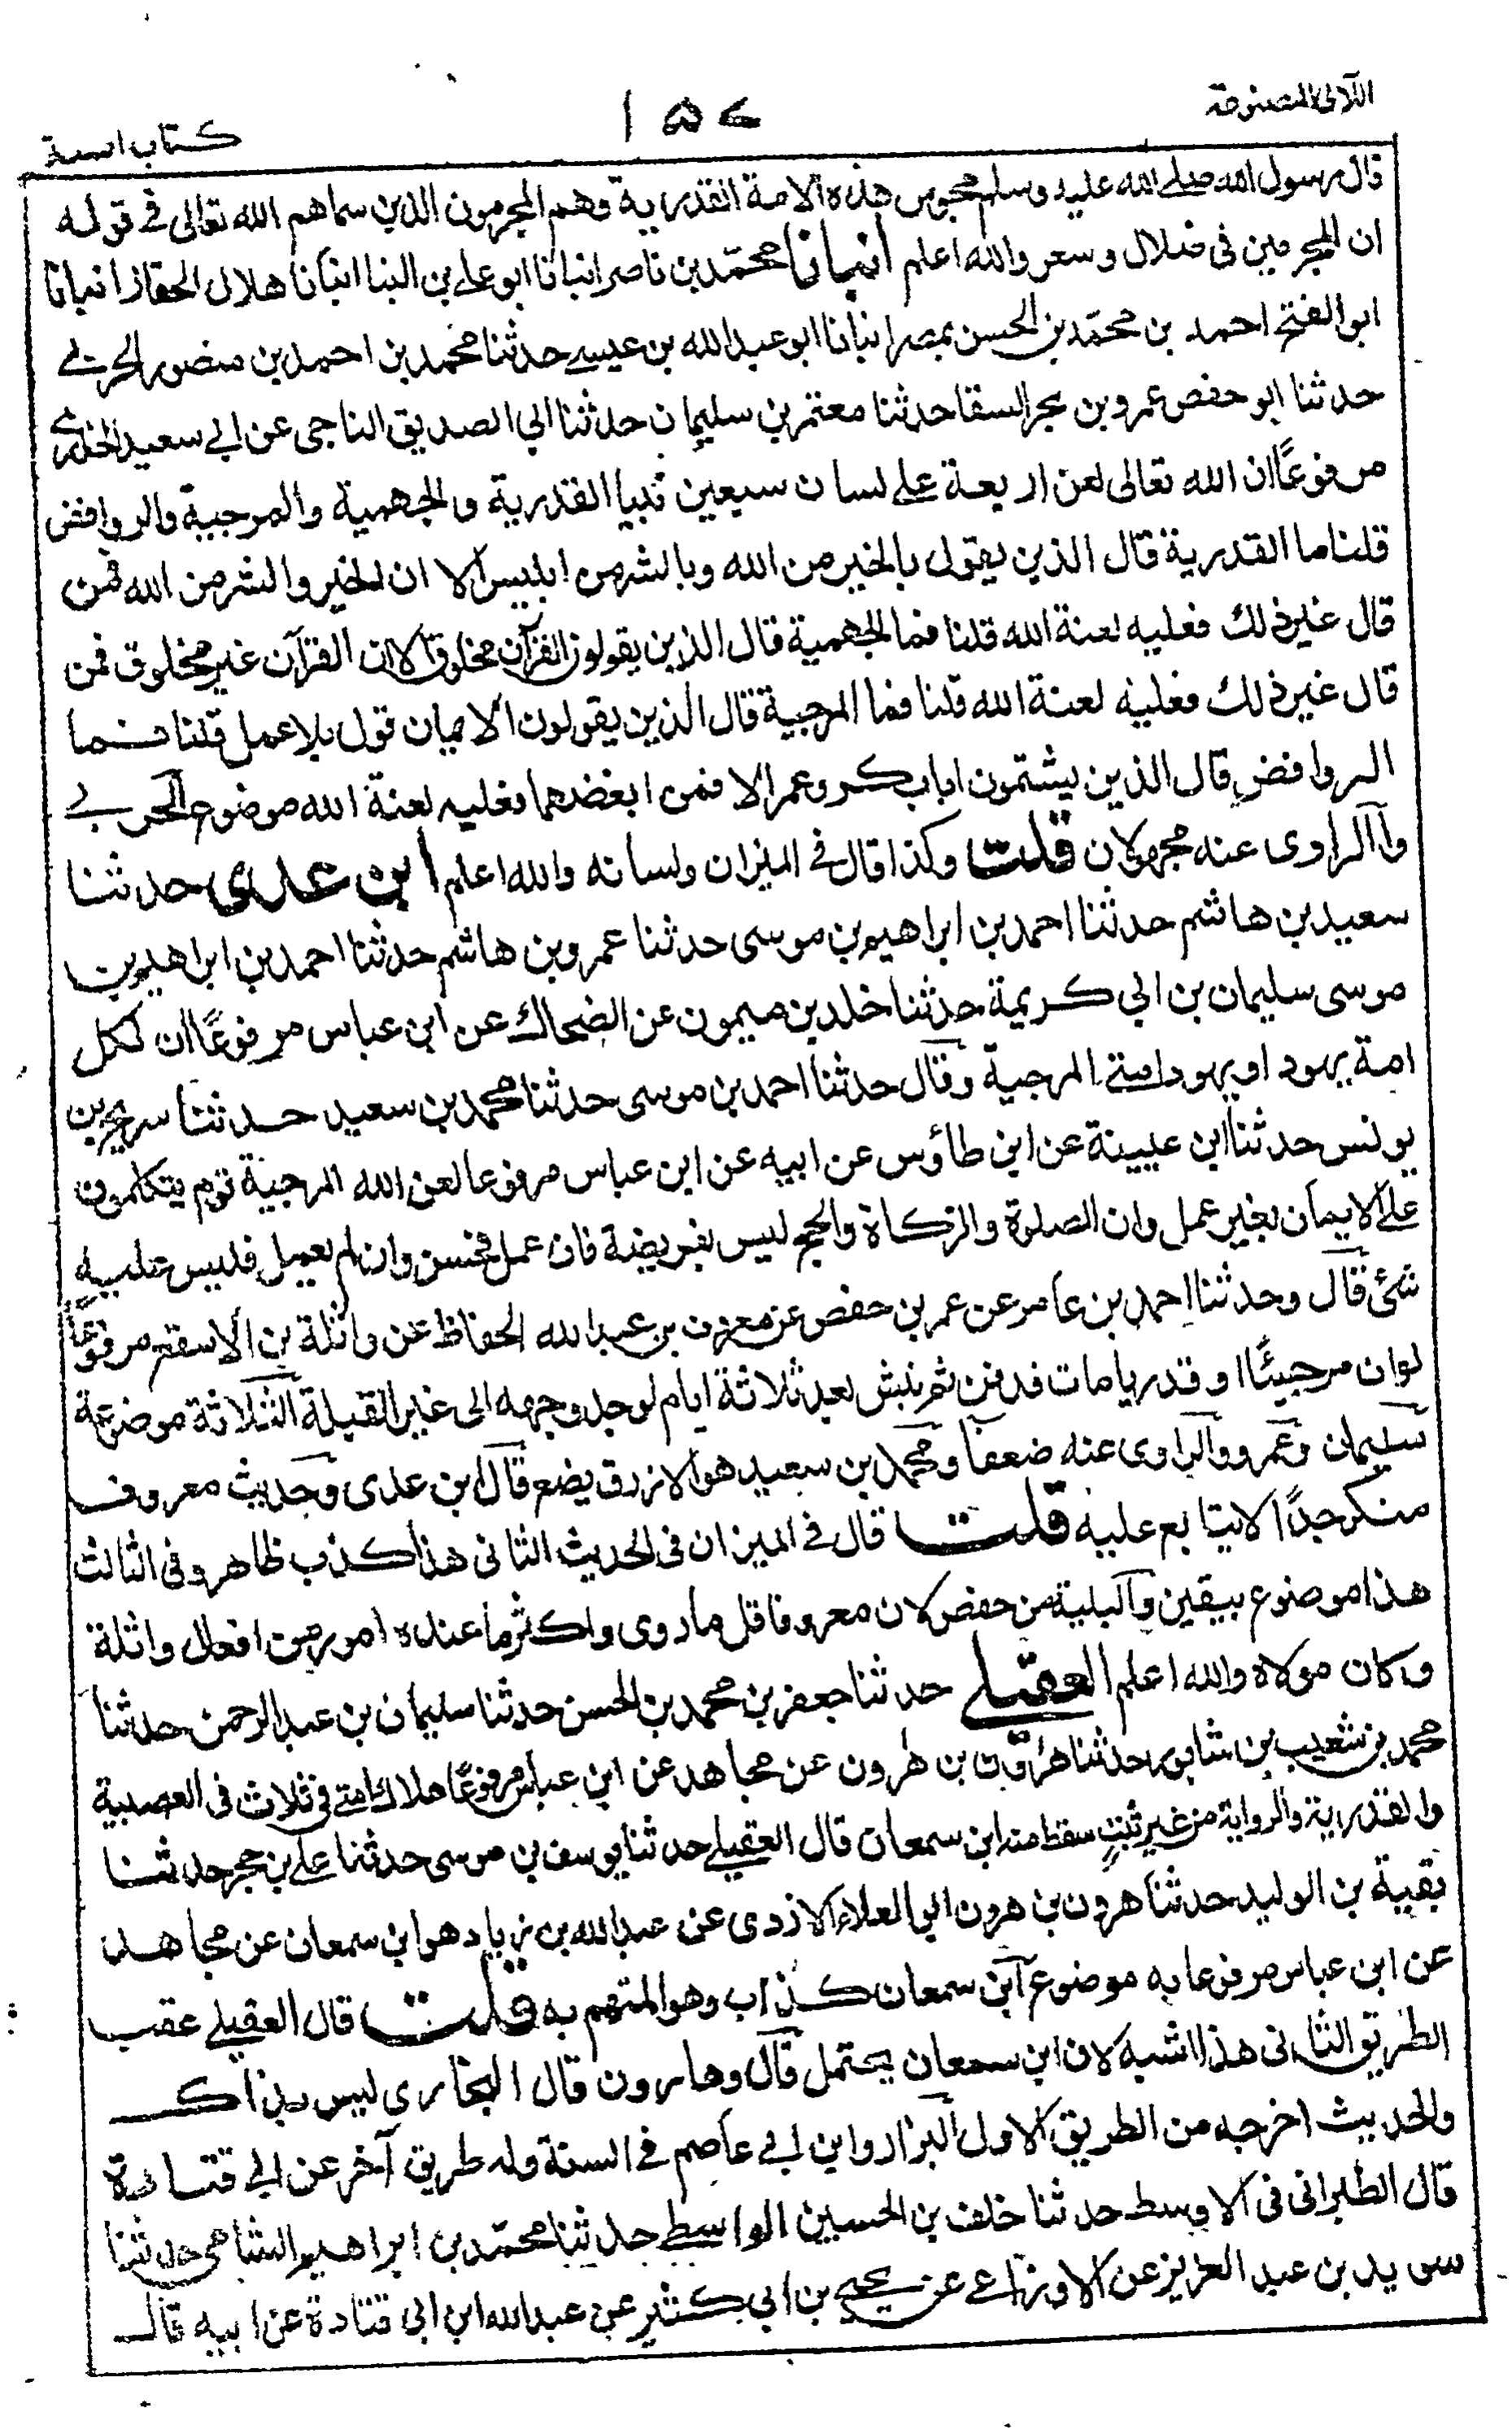 اللآلي المصنوعة
١٥٧
كتاب السنة
قال رسول الله صلى الله عليه وسلم مجوس هذه الامة القدرية وهم المجرمون الذين سماهم الله تعالى في قوله
ان المجرمين في ضلال وسعر والله اعلم انبانا محمّد بن ناصر انبانا ابو علي بن البنا انبأنا هلال الحفار انبانا
ابو الفتح احمد بن محمّد بن الحسن بمصر انبانا ابو عبد الله بن عيسى حدثنا محمد بن احمد بن منصور الحربي
حدثنا ابو حفص عمرو بن بحر السقا حدثنا معتمر بن سليمان حدثنا ابي الصديق الناجي عن ابي سعيد الخدري
مرفوعًا ان الله تعالى لعن اربعة على لسان سبعين نبيا القدرية والجهمية والمرجية والروافض
قلنا ما القدرية قال الذين يقول بالخير من الله وبالشر من ابليس الا ان الخير والشر من الله فمن
قال غير ذلك فعليه لعنة الله قلنا فما الجهمية قال الذين يقولون القرآن مخلوق الا ان القرآن غير مخلوق فمن
قال غير ذلك فعليه لعنة الله قلنا فما المرجية قال الذين يقولون الايمان قول بلا عمل قلنا فما
الروافض قال الذين يشتمون ابابكر وعمر الا فمن ابغضهما فعليه لعنة الله موضوع الحربي
والراوى عنه مجهولان قلت وكذا قال في الميزان ولسانه والله اعلم ابن عدي حدثنا
سعيد بن هاشم حدثنا احمد بن ابراهيم بن موسى حدثنا عمرو بن هاشم حدثنا احمد بن ابراهيم بن
موسى سليمان بن ابي كريمة حدثنا خلد بن ميمون عن الضحاك عن ابن عباس مرفوعًا ان لكل
امة يهود او يهود امتي المرجية وقال حدثنا احمد بن موسى حدثنا محمد بن سعيد حدثنا سريج بن
يونس حدثنا ابن عيينة عن ابن طاؤس عن ابيه عن ابن عباس مرفوعا لعن الله المرجية قوم يتكلمون
على الايمان بغير عمل وان الصلوة والزكاة والحج ليس بفريضة فان عمل فحسن وان لم يعمل فليس عليه
شئ قال وحدثنا احمد بن عامر عن عمر بن حفص عن معروف بن عبد الله الحفاظ عن واثلة بن الاسقع مرفوعًا
لو ان مرجيئًا او قدريا مات فدفن ثم نبش بعد ثلاثة ايام لوجد وجهه الى غير القبلة الثلاثة موضوعة
سليمان وعمرو والراوى عنه ضعفا ومحمد بن سعيد هو الازرق يضع قال ابن عدى وحديث معروف
منكر جدًا لا يتابع عليه قلت قال في الميزان في الحديث الثاني هذا كذب ظاهر وفي الثالث
هذا موضوع بيقين والبلية من حفص لان معروفا قل ما روى واكثر ما عنده امور من افعال واثلة
وكان مولاه والله اعلم العقيلي حدثنا جعفر بن محمد بن الحسن حدثنا سليمان بن عبد الرحمن حدثنا
محمد بن شعيب بن شابور حدثنا هرون بن هرون عن مجاهد عن ابن عباس مرفوعًا هلاك امتي في ثلاث في العصبية
والقدرية والرواية من غير ثبت سقط منه ابن سمعان قال العقيلي حدثنا يوسف بن موسى حدثنا علي بن حجر حدثنا
بقية بن الوليد حدثنا هرون بن هرون ابي العلاء الازدى عن عبد الله بن زياد هو ابن سمعان عن مجاهد
عن ابن عباس مرفوعا به موضوع ابن سمعان كذاب وهو المتهم به قلت قال العقيلي عقب
الطريق الثاني هذا اشبه لان ابن سمعان يحتمل قال وهارون قال البخاري ليس بذاك
والحديث اخرجه من الطريق الاول البزار وابن ابي عاصم في السنة وله طريق آخر عن ابي قتادة
قال الطبراني في الاوسط حدثنا خلف بن الحسين الواسطي حدثنا محمّد بن ابراهيم الشامي حدثنا
سويد بن عبد العزيز عن الاوزاعي عن يحيى بن ابي كثير عن عبد الله ابن ابي قتادة عن ابيه قال